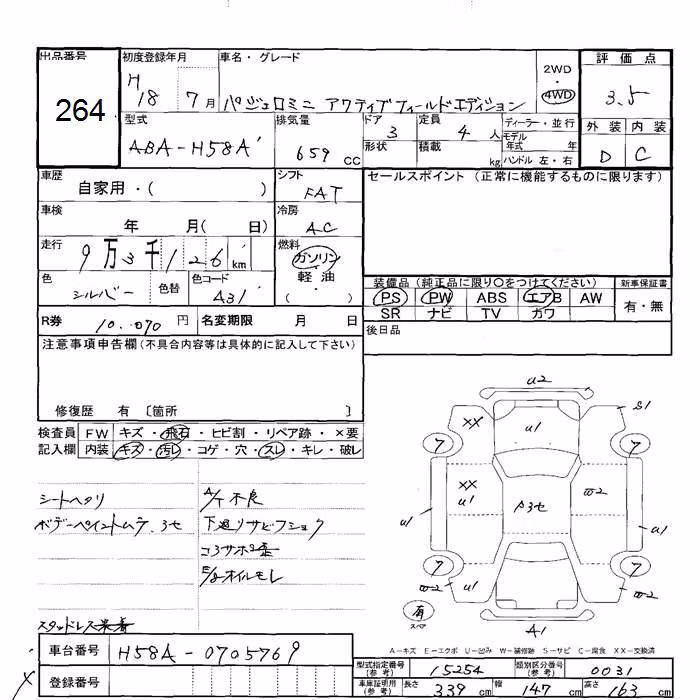 出品番号 初度登録年月 車名・グレード 2WD 評価点
264 H 18 7月 パジェロミニ アクティブフィールドエディション 4WD 3.5
型式 排気量 ドア 定員 ディーラー・並行 外装 内装
ABA-H58A 659 CC 3 4 人 モデル年式 年 D C
形状 積載 kg ハンドル 左・右
車歴 シフト セールスポイント (正常に機能するものに限ります)
自家用・( ) FAT
車検 冷房
年 月( 日) AC
走行 燃料
9万3千126 km ガソリン
色 色替 色コード 軽油
シルバー A31 ( )
装備品 (純正品に限り○をつけてください) 新車保証書
PS PW ABS エアB AW 有・無
SR ナビ TV カワ
R券 10.070 円 名変期限 月 日 後日品
注意事項申告欄 (不具合内容等は具体的に記入して下さい)
修復歴 有 〔箇所 〕
検査員 FW キズ・飛石・ヒビ割・リペア跡・×要
記入欄 内装 キズ・汚レ・コゲ・穴・スレ・キレ・破レ
シートヘタリ A/T不良
ボデーペイントムラ.3セ 下廻リサビフショク
コアサポ
E/gオイルモレ
スタッドレス装着
U2
XX U1 S1
7 7
XX U1 P3セ W2
U1 U1
7 7
W2 U1 U1 W2
有 スペア
A1
A-キズ E-エクボ U-凹み W-補修跡 S-サビ C-腐食 XX-交換済
車台番号 H58A-0705769
登録番号
型式指定番号(参考) 15254 類別区分番号(参考) 0031
車庫証明用(参考) 長さ 339 cm 幅 147 cm 高さ 163 cm